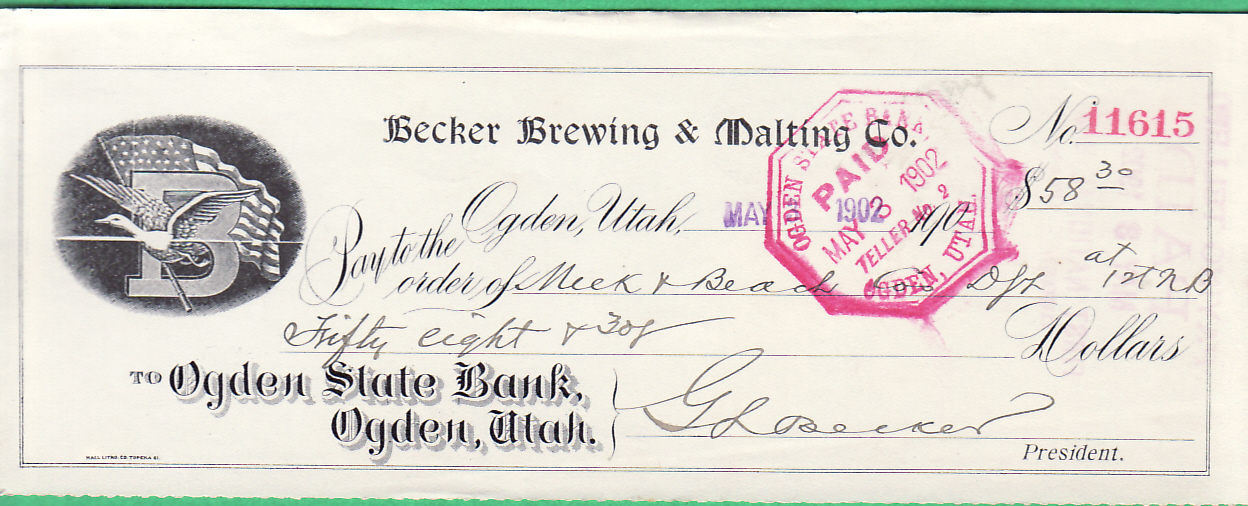 Becker Brewing & Malting Co.
No. 11615
$58 30
Ogden, Utah, MAY 1902 190
Pay to the
order of Meek & Beach Dft at 1st N B
Fifty eight & 30/ Dollars
TO Ogden State Bank,
Ogden, Utah.
G L Becker
President.
OGDEN STATE BANK
PAID
MAY 3 1902
TELLER No. 2
OGDEN, UTAH.
B
HALL LITHO. CO. TOPEKA